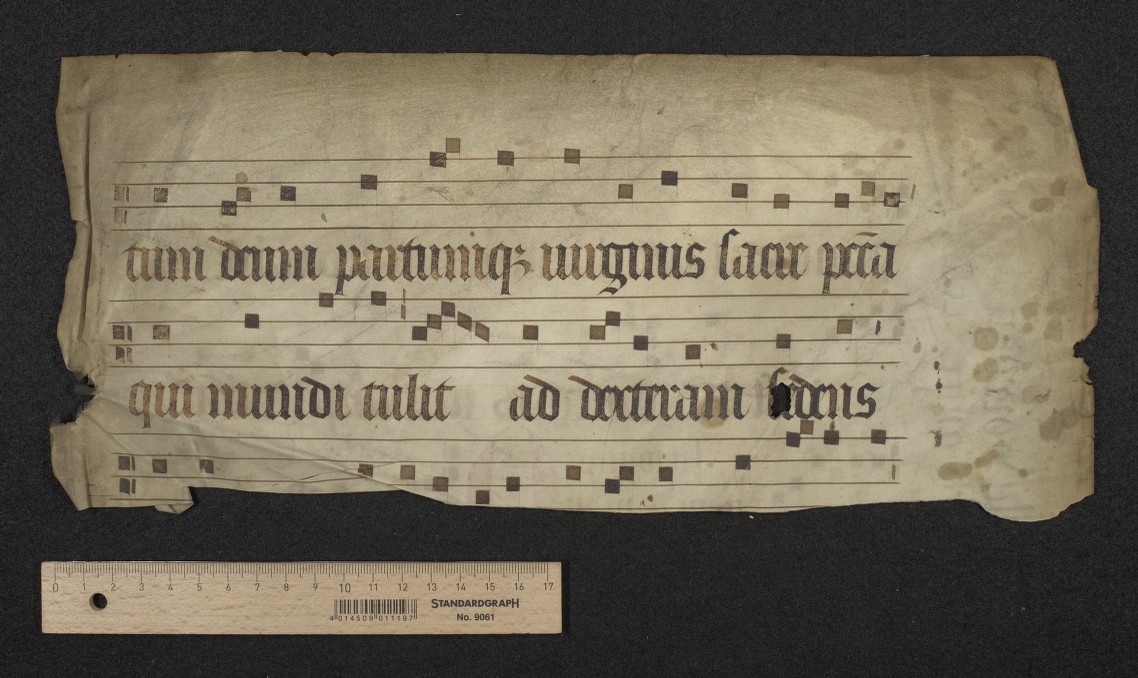 tum deum partumq; uirginis sacre pcc̄a
qui mundi tulit ad dexteram sedens
0 1 2 3 4 5 6 7 8 9 10 11 12 13 14 15 16 17
4 014509 011197
STANDARDGRAPH
No. 9061